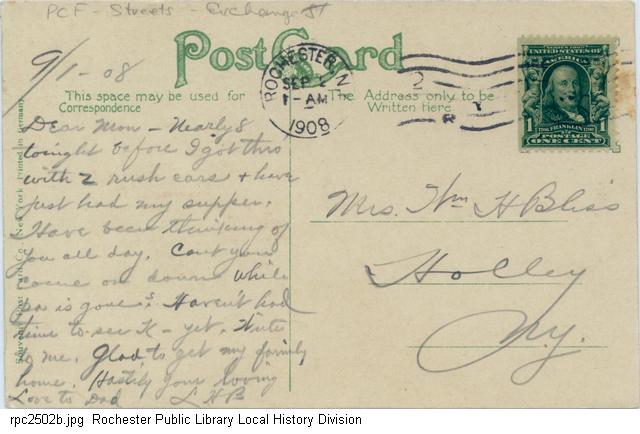 PCF - Streets - Exchange St
Post Card
9/1-08
ROCHESTER, N.
SEP
1-AM
1908
This space may be used for
Correspondence
The Address only to be
Written here
UNITED STATES OF
AMERICA
1 FRANKLIN 1
POSTAGE
ONE CENT
Dear Mom - Nearly 8
tonight before I got thro
with 2 rush cars & have
just had my supper.
Have been thinking of
you all day. Cant you
come on down while
pa is gone? Havent had
time to see K - yet. Write
to me. Glad to get my family
home. Hastily your loving
Love to Dad L H B
Mrs. Wm H Bliss
Holley
N.Y.
Souvenir Post Card Co. New York Printed in Germany
rpc2502b.jpg Rochester Public Library Local History Division